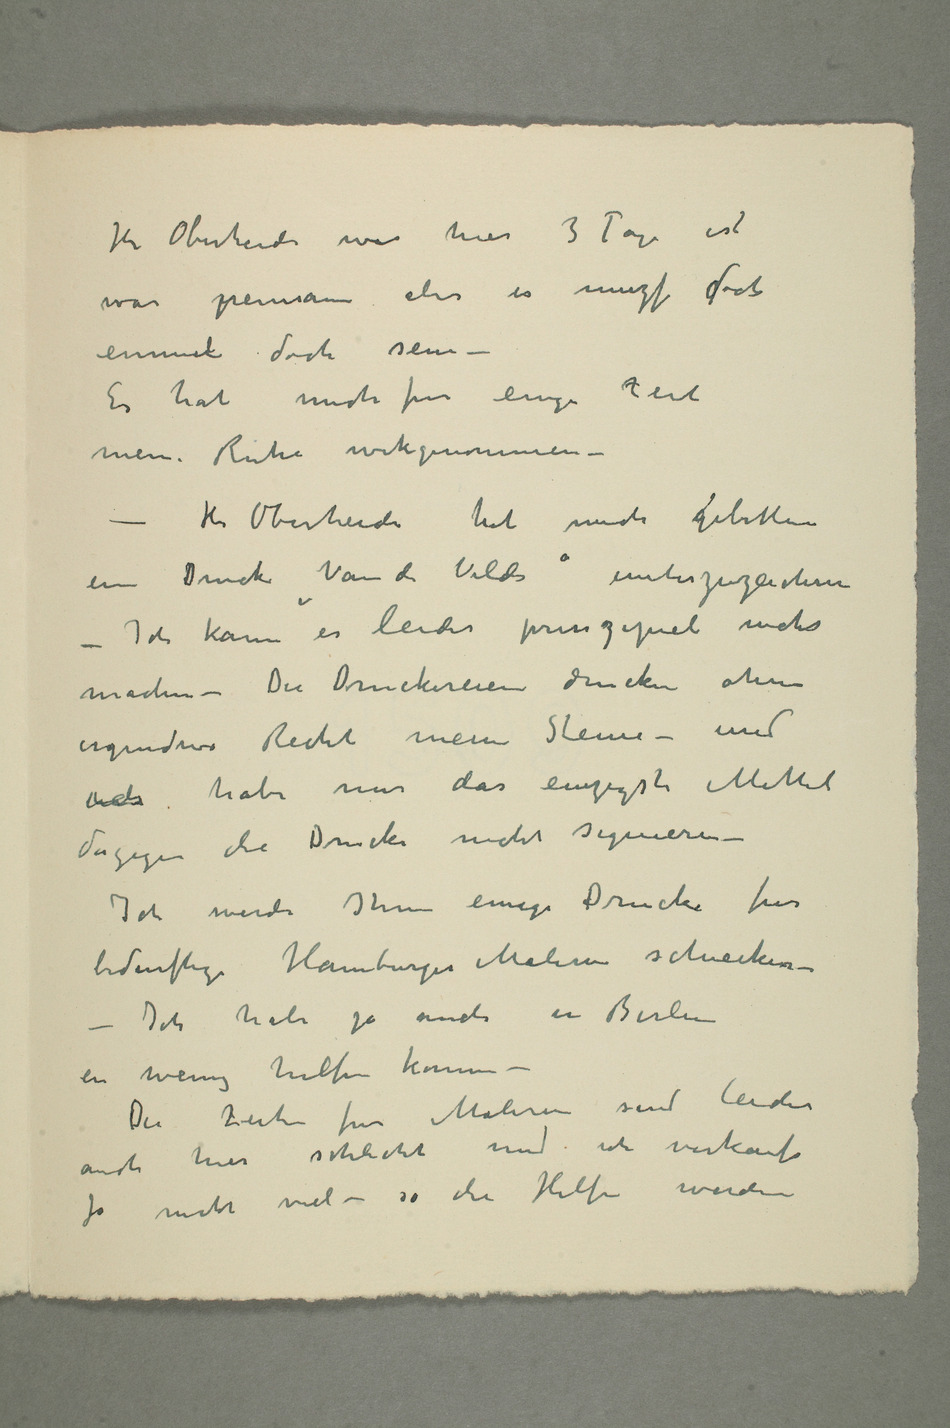 Hr Oberheide war hier 3 Tage est
war penisam aber es muszf doch
einmal doch sein –
Es hat mich fur einige Zeit
meine Ruhe wekgenommen –
– Hr Oberheide hat mich gebitten
ein Druck Van de Velde unterzuzeichnen
– Ich kann es leider prinzipiel nicht
machen – Die Druckereien drucken ohne
irgendwo Recht meine Steine – und
ich habe nur das einzigste Mittel
dagegen die Drucke nicht signieren –
Ich werde Ihnen einige Drucke fur
bedurftige Hamburger Malern schicken –
– Ich habe ja auch in Berlin
ein wenig helfen konnen –
Die Zeiten fur Malern sind leider
auch hier schlecht und ich verkaufe
ja nicht viel – so die Hilfe werden